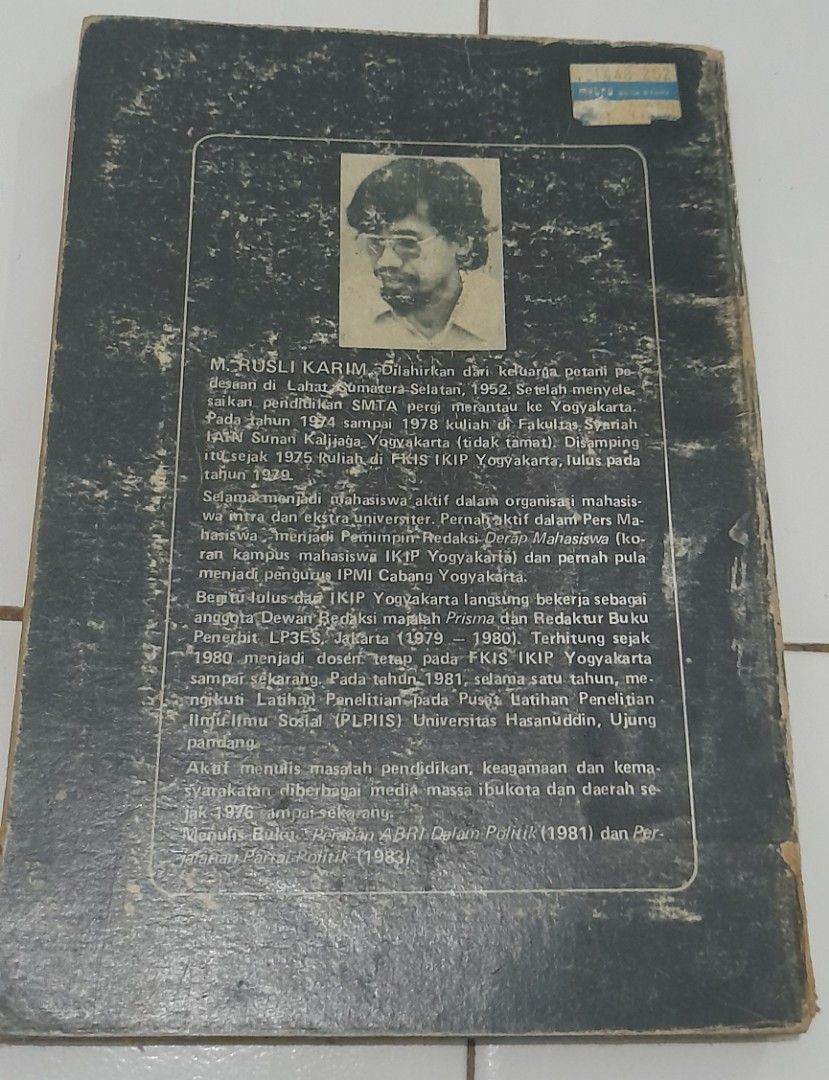 1448 252
metro
M. RUSLI KARIM, Dilahirkan dari keluarga petani pe-
desaan di Lahat, Sumatera Selatan, 1952. Setelah menyele-
saikan pendidikan SMTA pergi merantau ke Yogyakarta.
Pada tahun 1974 sampai 1978 kuliah di Fakultas Syariah
IAIN Sunan Kalijaga Yogyakarta (tidak tamat). Disamping
itu sejak 1975 kuliah di FKIS IKIP Yogyakarta, lulus pada
tahun 1979.
Selama menjadi mahasiswa aktif dalam organisasi mahasis-
wa intra dan ekstra universiter. Pernah aktif dalam Pers Ma-
hasiswa, menjadi Pemimpin Redaksi Derap Mahasiswa (ko-
ran kampus mahasiswa IKIP Yogyakarta) dan pernah pula
menjadi pengurus IPMI Cabang Yogyakarta.
Begitu lulus dari IKIP Yogyakarta langsung bekerja sebagai
anggota Dewan Redaksi majalah Prisma dan Redaktur Buku
Penerbit LP3ES, Jakarta (1979 – 1980). Terhitung sejak
1980 menjadi dosen tetap pada FKIS IKIP Yogyakarta
sampai sekarang. Pada tahun 1981, selama satu tahun, me-
ngikuti Latihan Penelitian pada Pusat Latihan Penelitian
Ilmu-Ilmu Sosial (PLPIIS) Universitas Hasanuddin, Ujung
pandang.
Aktif menulis masalah pendidikan, keagamaan dan kema-
syarakatan diberbagai media massa ibukota dan daerah se-
jak 1976 sampai sekarang.
Menulis Buku: Peranan ABRI Dalam Politik (1981) dan Per-
jalanan Partai Politik (1983).